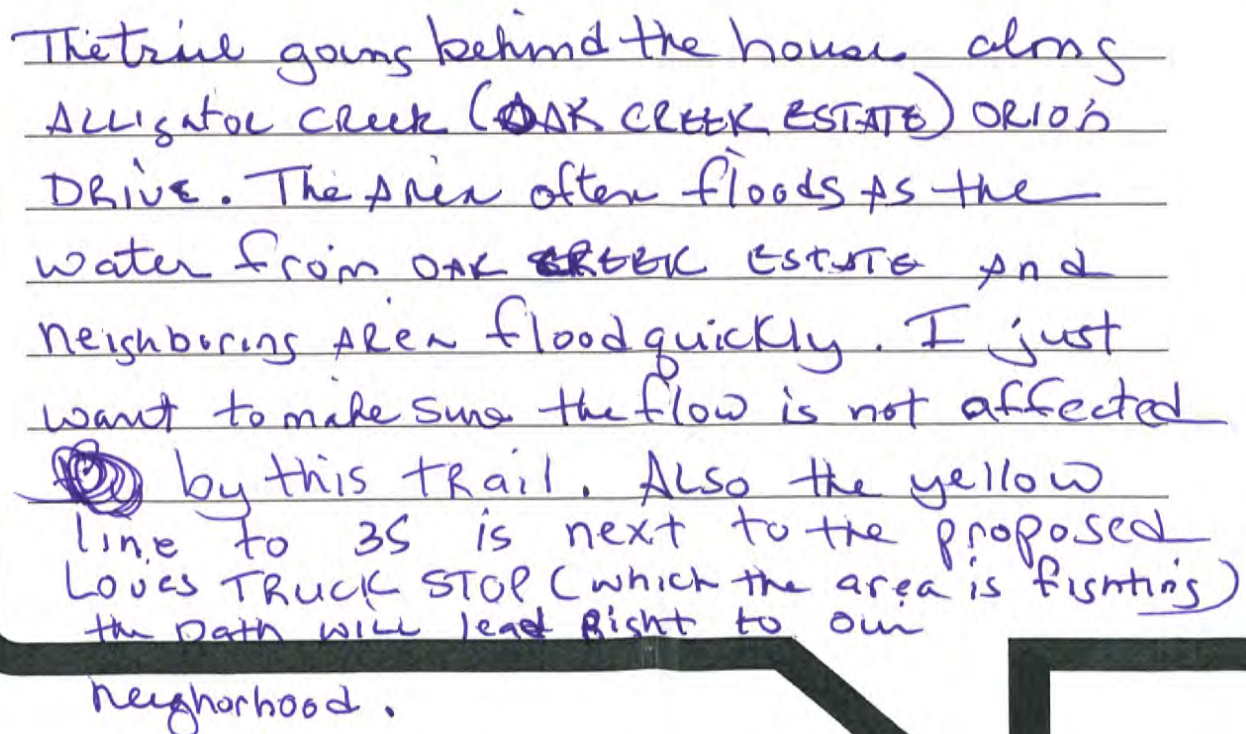 The trail going behind the house along
ALLigator CReek (OAK CREEK ESTATE) ORION
DRIVE. The AReA often floods AS the
water from OAK CREEK ESTATE And
Neighboring AReA flood quickly. I just
want to make sure the flow is not affected
by this TRail. ALSO the yellow
line to 35 is next to the proposed
Loves TRUCK STOP (which the area is fighting)
the path WILL lead Right to our
neighorhood.